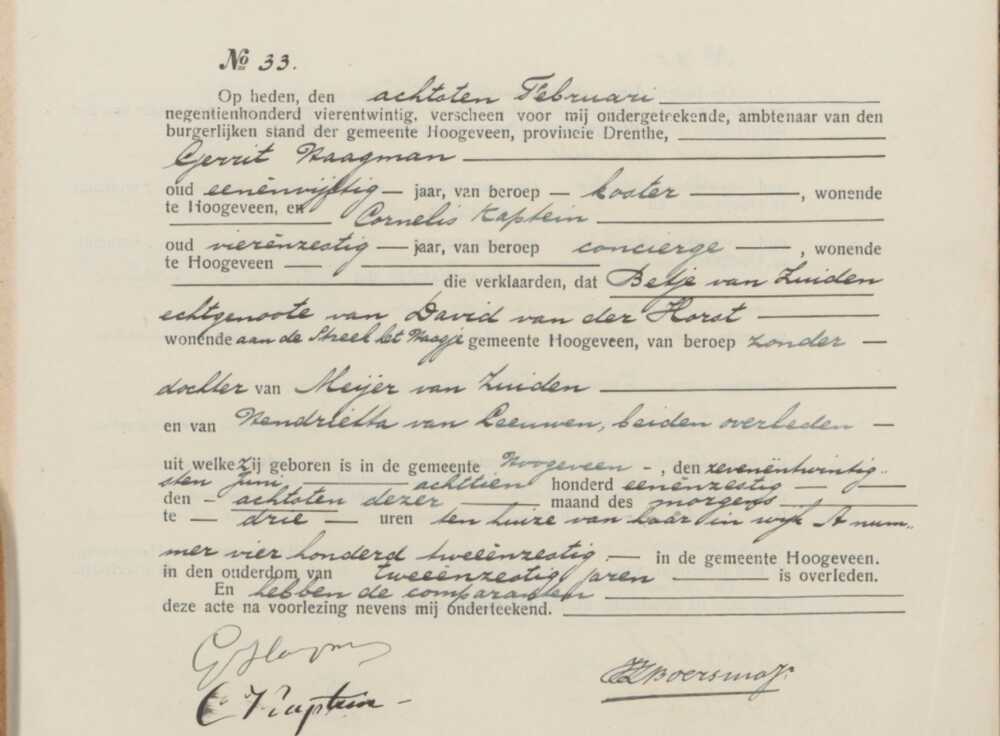 № 33.
Op heden, den achtsten Februari
negentienhonderd vierentwintig, verscheen voor mij ondergeteekende, ambtenaar van den
burgerlijken stand der gemeente Hoogeveen, provincie Drenthe,
Gerrit Haagman
oud eenënvijftig jaar, van beroep koster, wonende
te Hoogeveen, en Cornelis Kaptein
oud vierënzestig jaar, van beroep concierge, wonende
te Hoogeveen
die verklaarden, dat Betje van Zuiden
echtgenoote van David van der Horst
wonende aan de Streek het Haagje gemeente Hoogeveen, van beroep zonder
dochter van Meijer van Zuiden
en van Hendriëtta van Leeuwen, beiden overleden
uit welke zij geboren is in de gemeente Hoogeveen, den zevenëntwintig-
sten Juni achttien honderd eenënzestig
den achtsten dezer maand des morgens
te drie uren ten huize van haar in wijk A num-
mer vier honderd tweeënzestig in de gemeente Hoogeveen.
in den ouderdom van tweeënzestig jaren is overleden.
En hebben de comparanten
deze acte na voorlezing nevens mij onderteekend.
G Haagman
C Kaptein
Boersma Jr